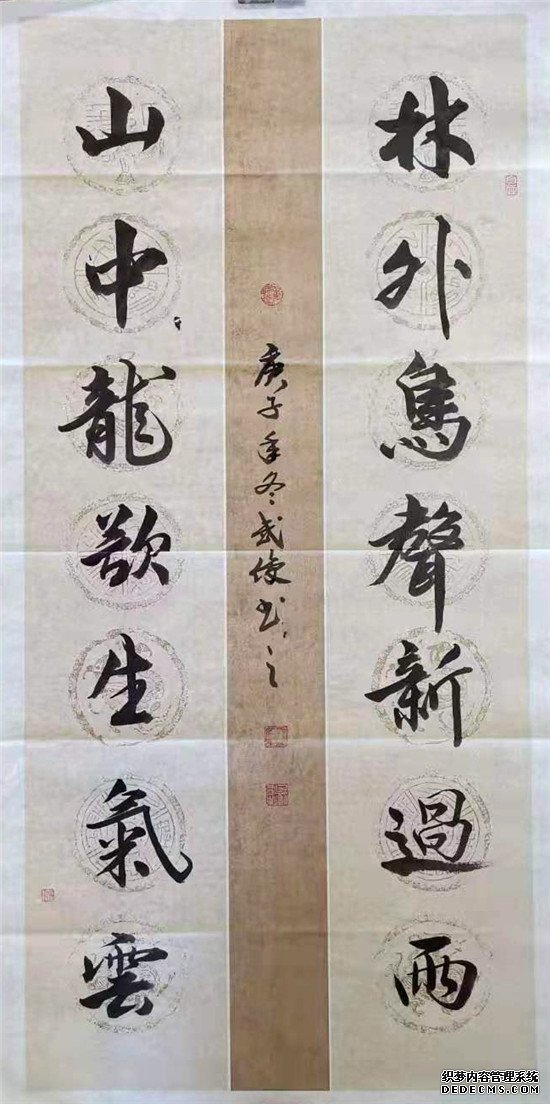 林外鳥聲新過雨
山中龍欲生氣雲
庚子年冬武俊书之
织梦内容管理系统
DEDECMS.COM